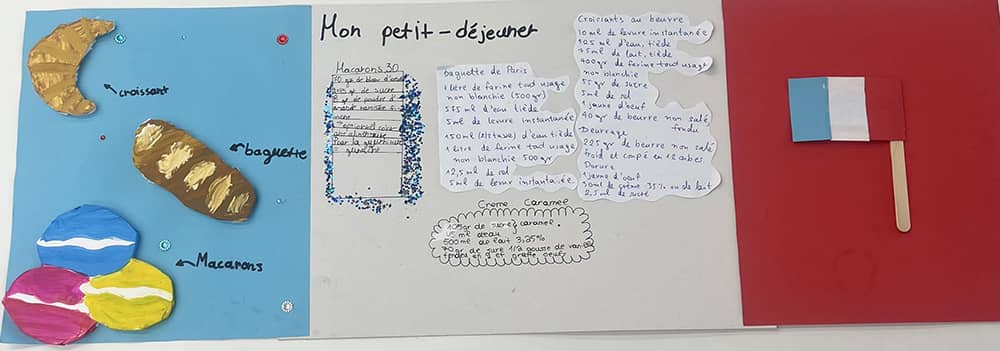 Mon petit-déjeuner
croissant
baguette
Macarons
Macarons 30
gr de blanc d'oeuf
gr de sucre
gr de poudre d'
optionnel
Pour la
baguette de Paris
1 litre de farine tout usage
non blanchie (500gr)
ml d'eau tiède
5ml de levure instantanée
150ml d'eau tiède
1 litre de farine tout usage
non blanchie 500gr
12,5ml de sel
5ml de levur instantanée
Croissants au beurre
10 ml de levure instantanée
125 ml d'eau, tiède
75ml de lait, tiède
400gr de farine tout usage
non blanchie
55gr de sucre
5ml de sel
1 jaune d'oeuf
40gr de beurre non salé,
fondu
Beurrage
225gr de beurre non salé
froid et coupé en 12 cubes
Dorure
1 jaune d'oeuf
30ml de crème 35% ou de lait
2,5ml de sucre
Creme Caramel
gr de sucre caramel.
ml d'eau
500ml de lait 3,25%
gr de sure 1/2 gousse de